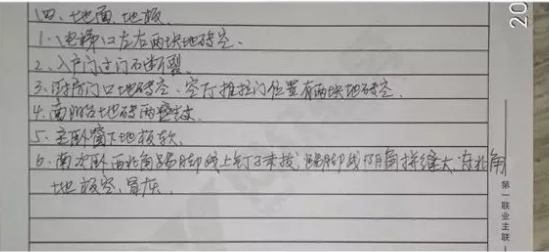 四、地面、地板
1. 电梯口左右两块地砖空.
2. 入户门过门石断裂
3. 厨房门口地砖空、客厅推拉门位置有两块地砖空.
4. 南阳台地砖两
5. 主卧窗下地板软.
6. 南次卧西北角踢脚线上钉子未按、踢脚线阴角拼缝大、东北角
地板空、冒灰.
20
第一联业主联